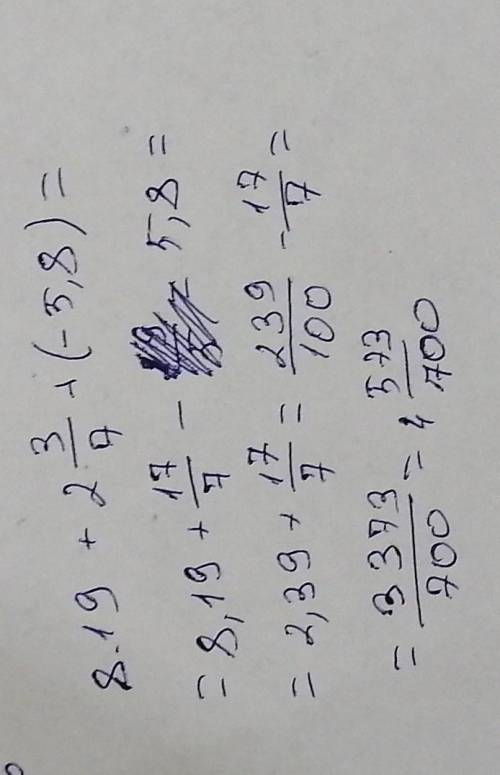 8.19 + 2 3/7 + (-5,8) =
= 8,19 + 17/7 - 5,8 =
= 2,39 + 17/7 = 239/100 - 17/7 =
= 3373/700 = 4 573/700